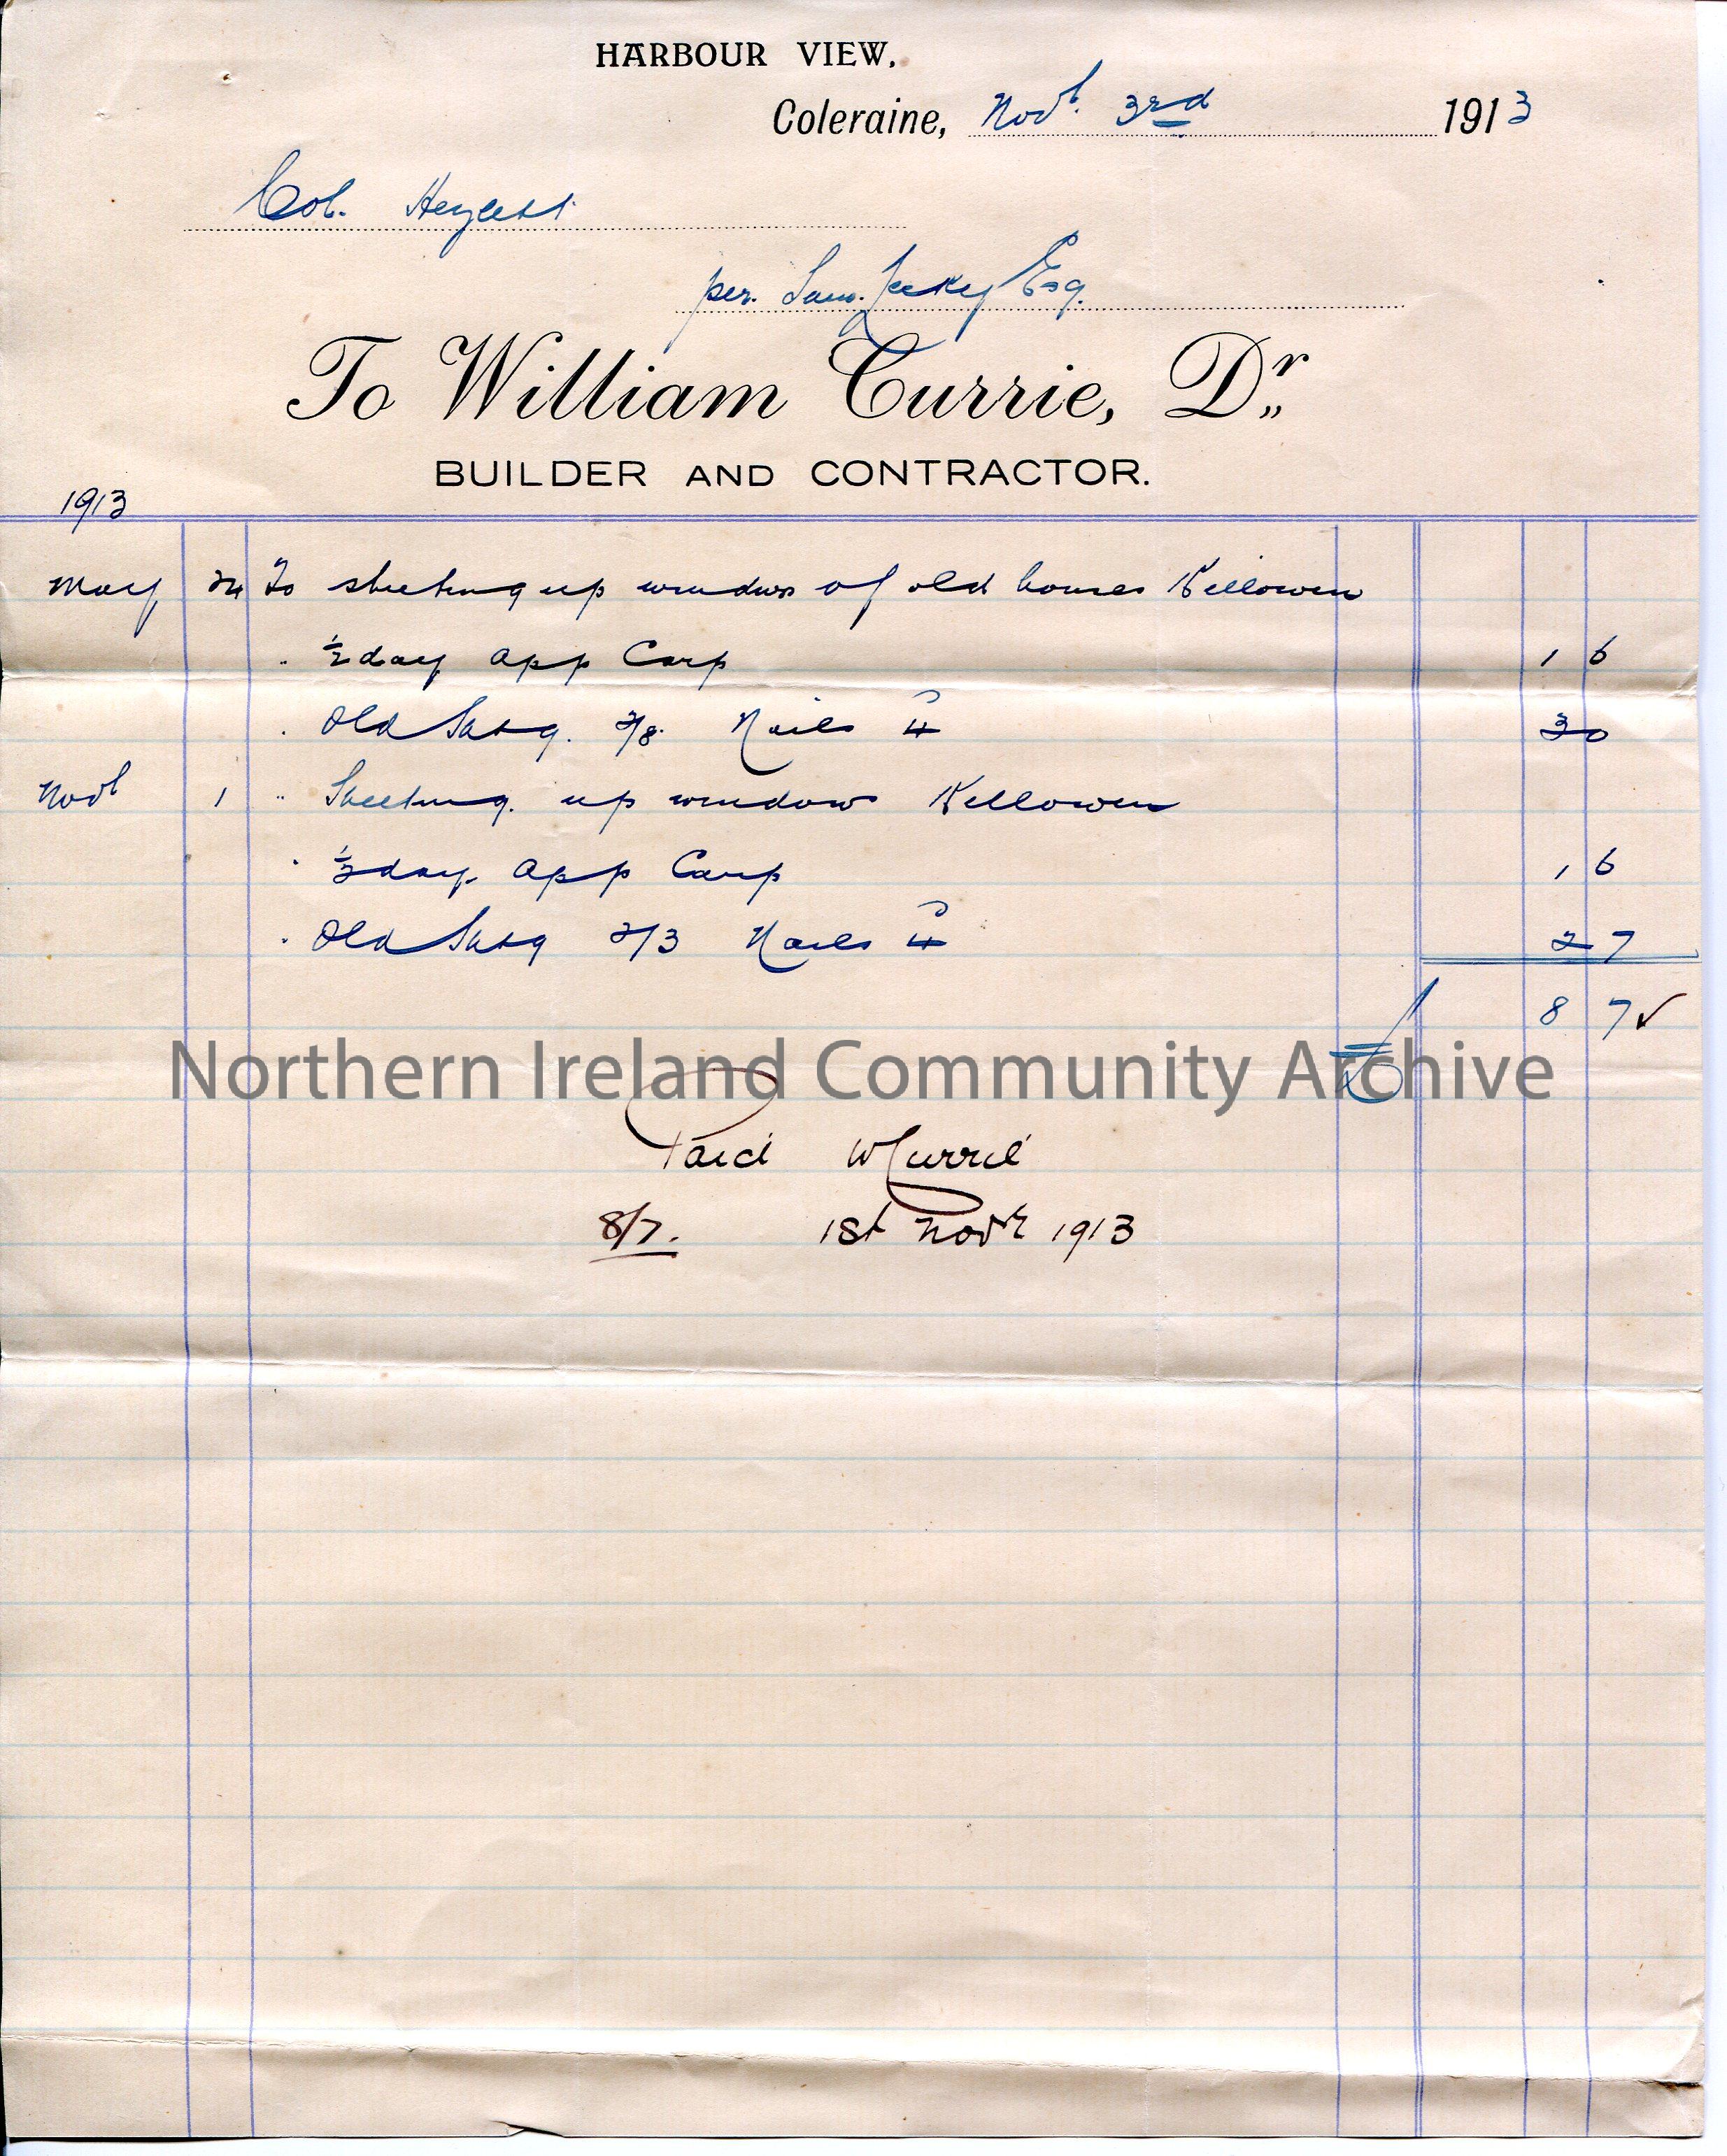 HARBOUR VIEW.
Coleraine, Novr. 3rd 1913
Col. Heyland
per. Saml. Esq.
To William Currie, Dr.,,
BUILDER AND CONTRACTOR.
1913
May 24 To sheeting up windows of old houses Killowen
" ½ day App Carp 1 6
" Old 2/8 Nails 4d 3 0
Novr 1 " Sheeting up windows Killowen
" ½ day App Carp 1 6
" Old 2/3 Nails 4d 2 7
£ 8 7 ✓
Northern Ireland Community Archive
Paid W Currie
8/7. 1st Novr 1913